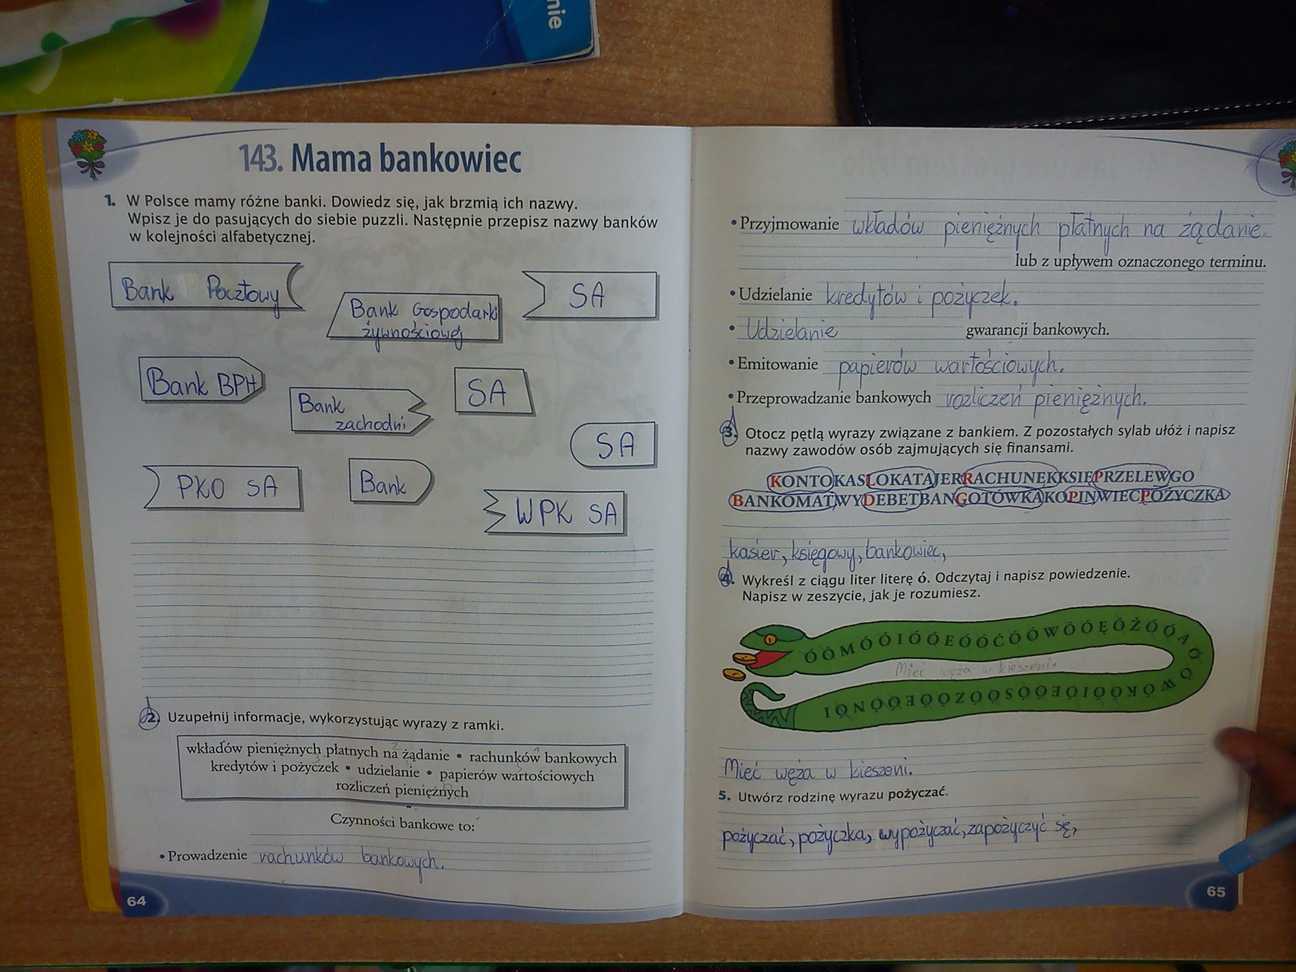 nie
143. Mama bankowiec
1. W Polsce mamy różne banki. Dowiedz się, jak brzmią ich nazwy.
Wpisz je do pasujących do siebie puzzli. Następnie przepisz nazwy banków
w kolejności alfabetycznej.
Bank Pocztowy
Bank Gospodarki
żywnościowej
SA
Bank BPH
Bank
zachodni
SA
SA
PKO SA
Bank
WPK SA
2. Uzupełnij informacje, wykorzystując wyrazy z ramki.
wkładów pieniężnych płatnych na żądanie • rachunków bankowych
kredytów i pożyczek • udzielanie • papierów wartościowych
rozliczeń pieniężnych
Czynności bankowe to:
• Prowadzenie rachunków bankowych.
64
• Przyjmowanie wkładów pieniężnych płatnych na żądanie
lub z upływem oznaczonego terminu.
• Udzielanie kredytów i pożyczek.
• Udzielanie gwarancji bankowych.
• Emitowanie papierów wartościowych.
• Przeprowadzanie bankowych rozliczeń pieniężnych.
3. Otocz pętlą wyrazy związane z bankiem. Z pozostałych sylab ułóż i napisz
nazwy zawodów osób zajmujących się finansami.
KONTOKASLOKATAJERRACHUNEKKSIĘPRZELEWGO
BANKOMATWYDEBETBANGOTÓWKAKOPINWIECPOŻYCZKA
kasier, księgowy, bankowiec,
4. Wykreśl z ciągu liter literę ó. Odczytaj i napisz powiedzenie.
Napisz w zeszycie, jak je rozumiesz.
ÓÓMÓÓIÓÓEÓÓĆÓÓWÓÓĘÓŻÓÓAÓ
ÓWÓKÓIÓIÓEÓÓSÓÓZÓÓEÓÓNÓI
Mieć węża w kieszeni.
Mieć węża w kieszeni.
5. Utwórz rodzinę wyrazu pożyczać.
pożyczać, pożyczka, wypożyczać, zapożyczyć się,
65